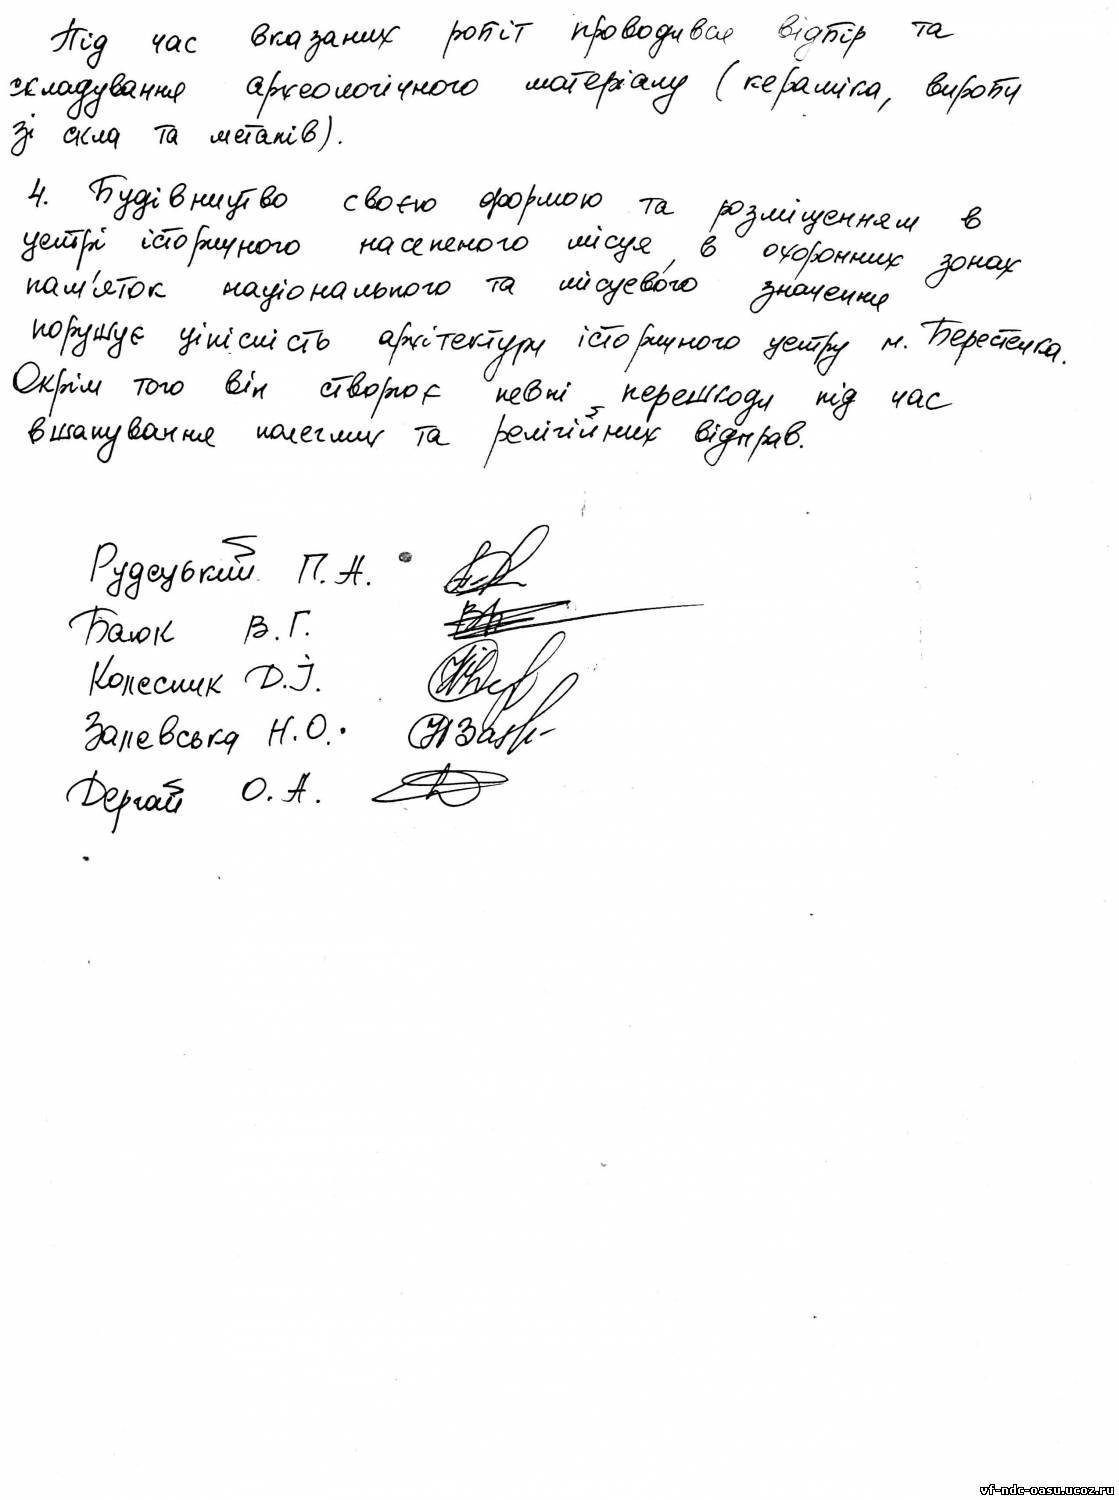 Під час вказаних робіт проводився відбір та
складування археологічного матеріалу (кераміка, вироби
зі скла та металів).
4. Будівництво своєю формою та розміщенням в
центрі історичного населеного місця, в охоронних зонах
пам'яток національного та місцевого значення
порушує цілісність архітектури історичного центру м. Берестечка.
Окрім того він створює певні перешкоди під час
вшанування полеглих та релігійних відправ.
Рудецький П.А.
Баюк В.Г.
Колесник Д.І.
Залевська Н.О.
Дергай О.А.
vf-ndc-oasu.ucoz.ru